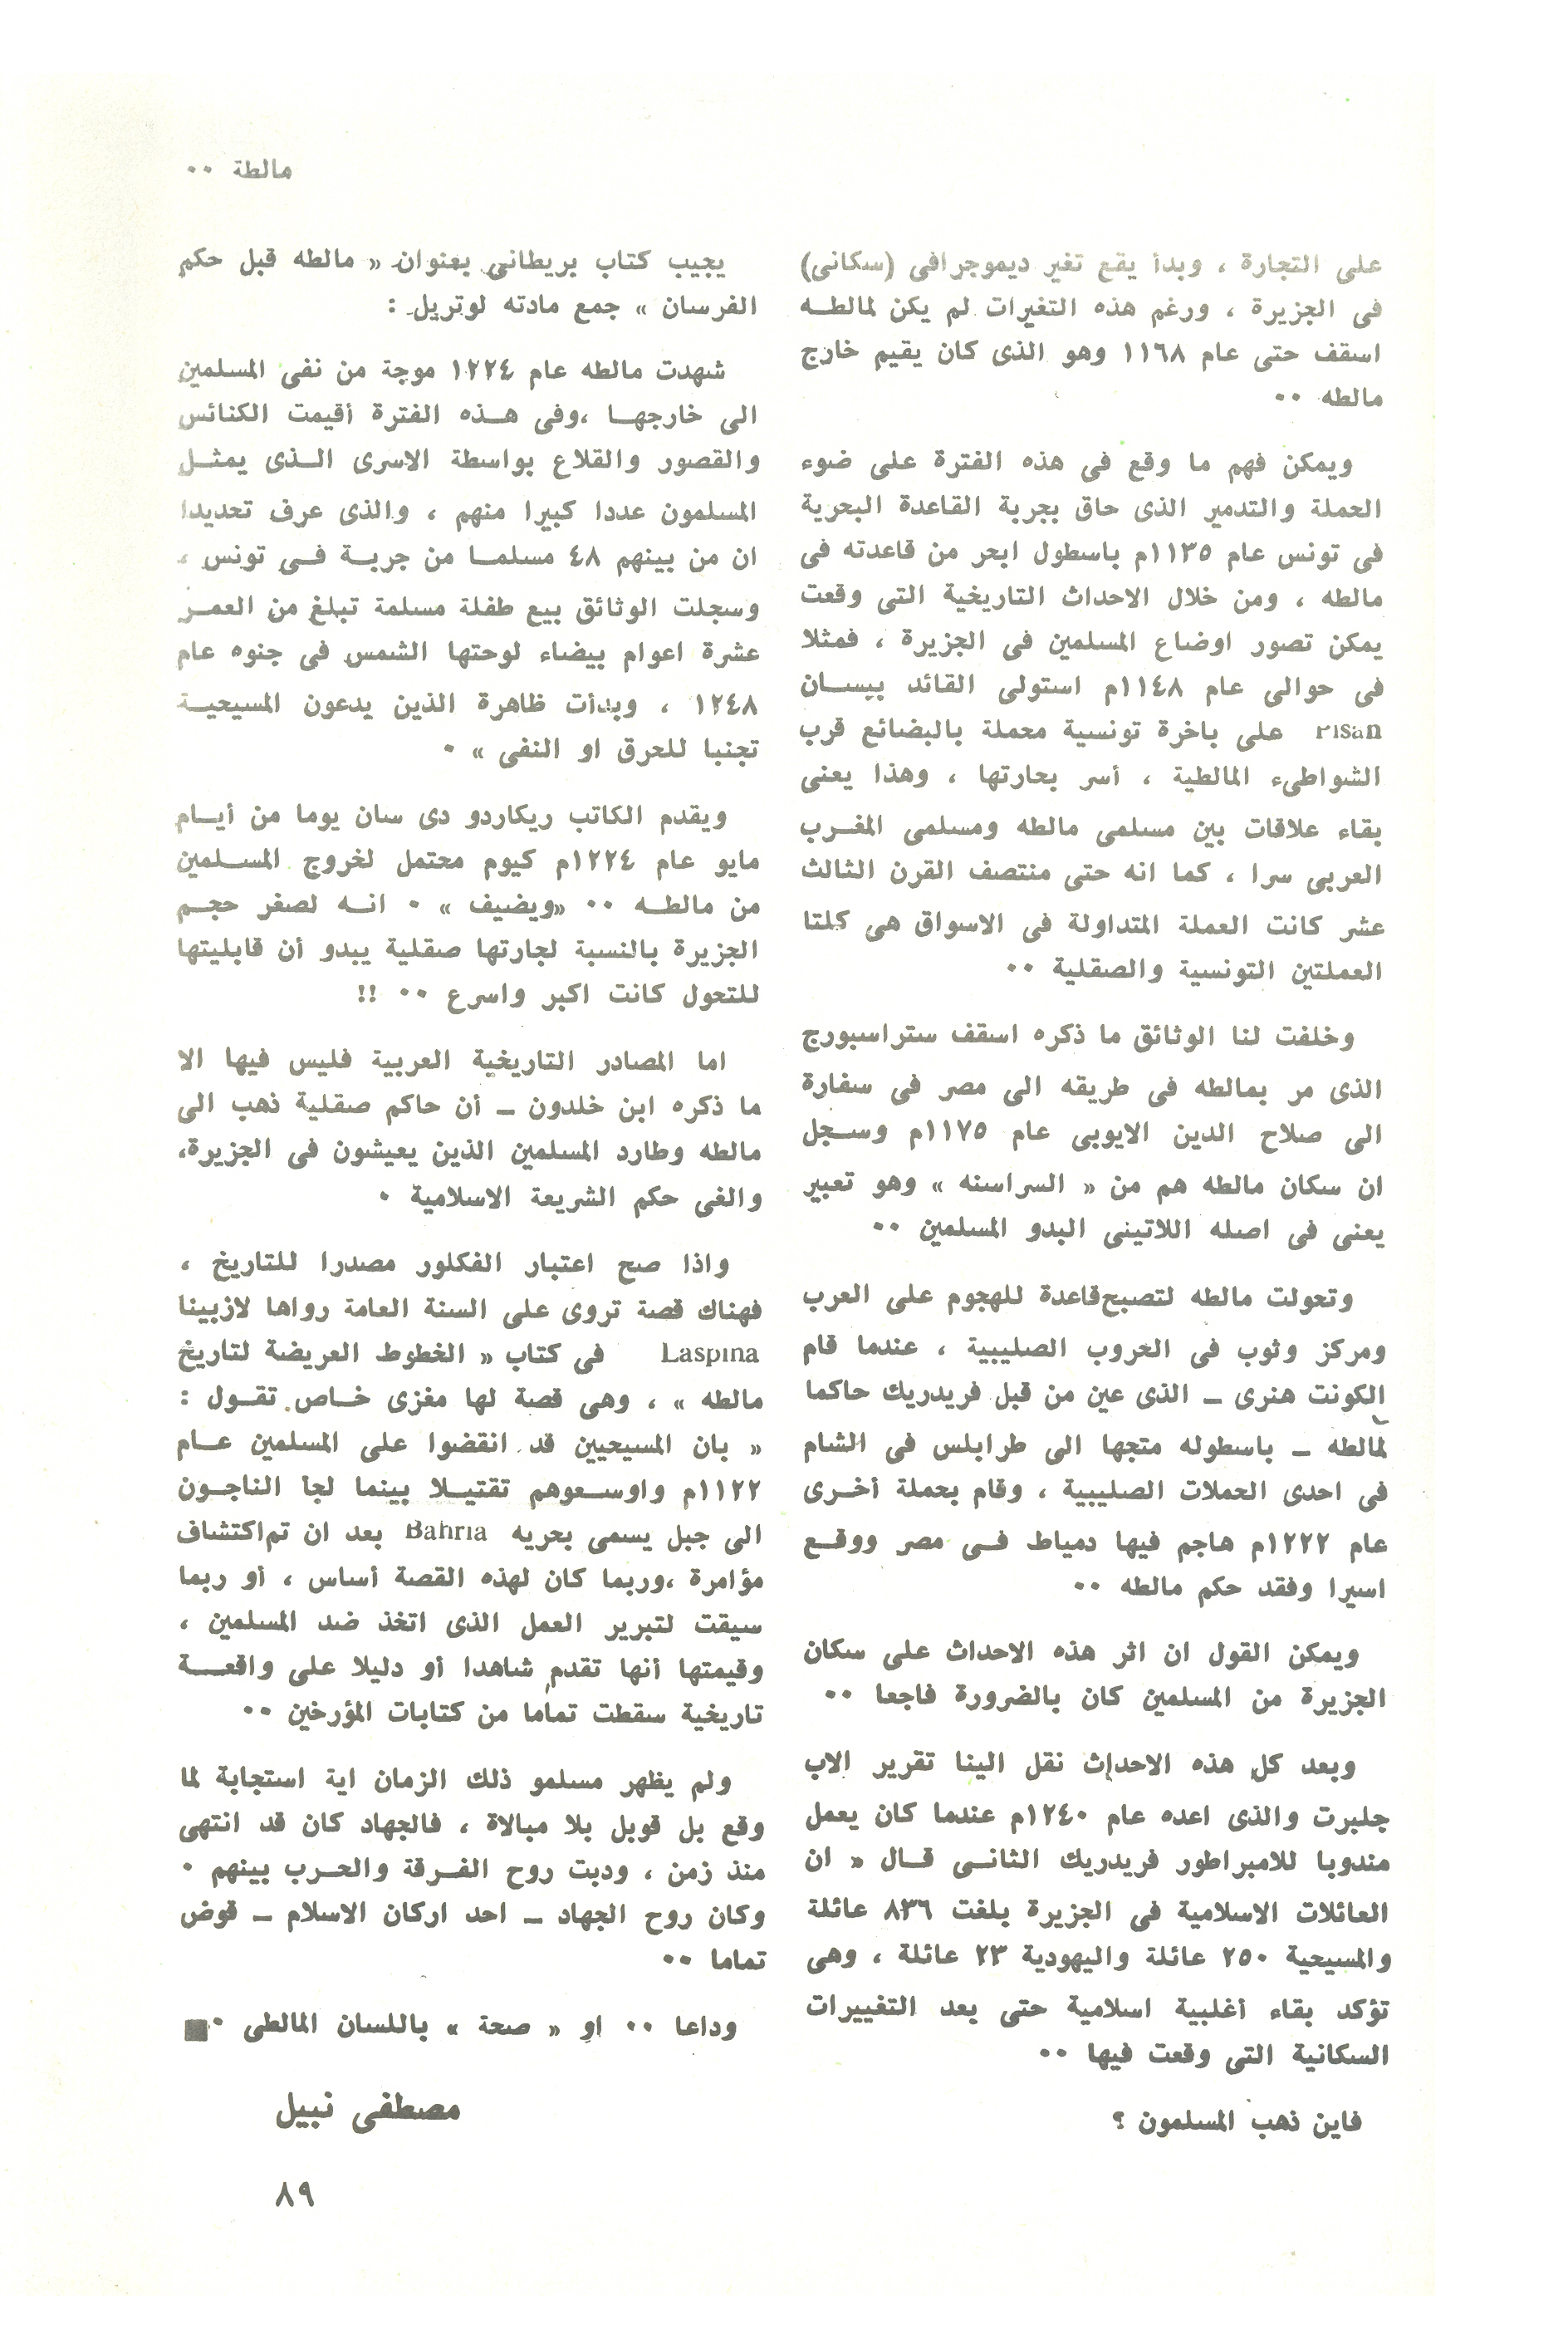 مالطة ٠٠
على التجارة ، وبدأ يقع تغير ديموجرافى (سكانى)
فى الجزيرة ، ورغم هذه التغيرات لم يكن لمالطــه
اسقف حتى عام ١١٦٨ وهو الذى كان يقيم خارج
مالطه ٠٠
ويمكن فهم ما وقع فى هذه الفترة على ضوء
الحملة والتدمير الذى حاق بجربة القاعدة البحرية
فى تونس عام ١١٣٥م باسطول ابحر من قاعدته فى
مالطه ، ومن خلال الاحداث التاريخية التى وقعت
يمكن تصور اوضاع المسلمين فى الجزيرة ، فمثلا
فى حوالى عام ١١٤٨م استولى القائد بيســان
Pisan على باخرة تونسية محملة بالبضائع قرب
الشواطىء المالطية ، أسر بحارتها ، وهذا يعنى
بقاء علاقات بين مسلمى مالطه ومسلمى المغــرب
العربى سرا ، كما انه حتى منتصف القرن الثالث
عشر كانت العملة المتداولة فى الاسواق هى كلتا
العملتين التونسية والصقلية ٠٠
وخلفت لنا الوثائق ما ذكره اسقف ستراسبورج
الذى مر بمالطه فى طريقه الى مصر فى سفارة
الى صلاح الدين الايوبى عام ١١٧٥م وســجل
ان سكان مالطه هم من « السراسنه » وهو تعبير
يعنى فى اصله اللاتينى البدو المسلمين ٠٠
وتحولت مالطه لتصبح قاعدة للهجوم على العرب
ومركز وثوب فى الحروب الصليبية ، عندما قام
الكونت هنرى ـ الذى عين من قبل فريدريك حاكما
لمالطه ـ باسطوله متجها الى طرابلس فى الشام
فى احدى الحملات الصليبية ، وقام بحملة أخــرى
عام ١٢٢٢م هاجم فيها دمياط فــى مصر ووقــع
اسيرا وفقد حكم مالطه ٠٠
ويمكن القول ان اثر هذه الاحداث على سكان
الجزيرة من المسلمين كان بالضرورة فاجعا ٠٠
وبعد كل هذه الاحداث نقل الينا تقرير الاب
جلبرت والذى اعده عام ١٢٤٠م عندما كان يعمل
مندوبا للامبراطور فريدريك الثانــى قــال « ان
العائلات الاسلامية فى الجزيرة بلغت ٨٣٦ عائلة
والمسيحية ٢٥٠ عائلة واليهودية ٢٣ عائلة ، وهى
تؤكد بقاء أغلبية اسلامية حتى بعد التغييرات
السكانية التى وقعت فيها ٠٠
فاين ذهب المسلمون ؟
يجيب كتاب بريطانى بعنوان « مالطه قبل حكم
الفرسان » جمع مادته لوتريل :
شهدت مالطه عام ١٢٢٤ موجة من نفى المسلمين
الى خارجهــا ،وفى هــذه الفترة أقيمت الكنائس
والقصور والقلاع بواسطة الاسرى الــذى يمثــل
المسلمون عددا كبيرا منهم ، والذى عرف تحديدا
ان من بينهم ٤٨ مسلمــا من جربــة فــى تونس ،
وسجلت الوثائق بيع طفلة مسلمة تبلغ من العمــر
عشرة اعوام بيضاء لوحتها الشمس فى جنوه عام
١٢٤٨ ، وبدأت ظاهرة الذين يدعون المسيحيــة
تجنبا للحرق او النفى » ٠
ويقدم الكاتب ريكاردو دى سان يوما من أيــام
مايو عام ١٢٢٤م كيوم محتمل لخروج المســلمين
من مالطــه ٠٠ «ويضيف » ٠ انــه لصغر حجــم
الجزيرة بالنسبة لجارتها صقلية يبدو أن قابليتها
للتحول كانت اكبر واسرع ٠٠ !!
اما المصادر التاريخية العربية فليس فيها الا
ما ذكره ابن خلدون ـ أن حاكم صقلية ذهب الى
مالطه وطارد المسلمين الذين يعيشون فى الجزيرة،
والغى حكم الشريعة الاسلامية ٠
واذا صح اعتبار الفكلور مصدرا للتاريخ ،
فهناك قصة تروى على السنة العامة رواها لازبينا
Laspina فى كتاب « الخطوط العريضة لتاريخ
مالطه » ، وهى قصة لها مغزى خــاص تقــول :
« بان المسيحيين قد انقضوا على المسلمين عــام
١١٢٢م واوســعوهم تقتيــلا بينما لجأ الناجــون
الى جبل يسمى بحريه Bahria بعد ان تم اكتشاف
مؤامرة ،وربما كان لهذه القصة أساس ، أو ربما
سيقت لتبرير العمل الذى اتخذ ضد المسلمين ،
وقيمتها أنها تقدم شاهدا أو دليلا على واقعــة
تاريخية سقطت تماما من كتابات المؤرخين ٠٠
ولم يظهر مسلمو ذلك الزمان اية استجابة لما
وقع بل قوبل بلا مبالاة ، فالجهاد كان قد انتهى
منذ زمن ، ودبت روح الفــرقة والحــرب بينهم ٠
وكان روح الجهاد ـ احد اركان الاسلام ـ قوض
تماما ٠٠
وداعا ٠٠ او « صحة » باللسان المالطى ٠■
مصطفى نبيل
٨٩